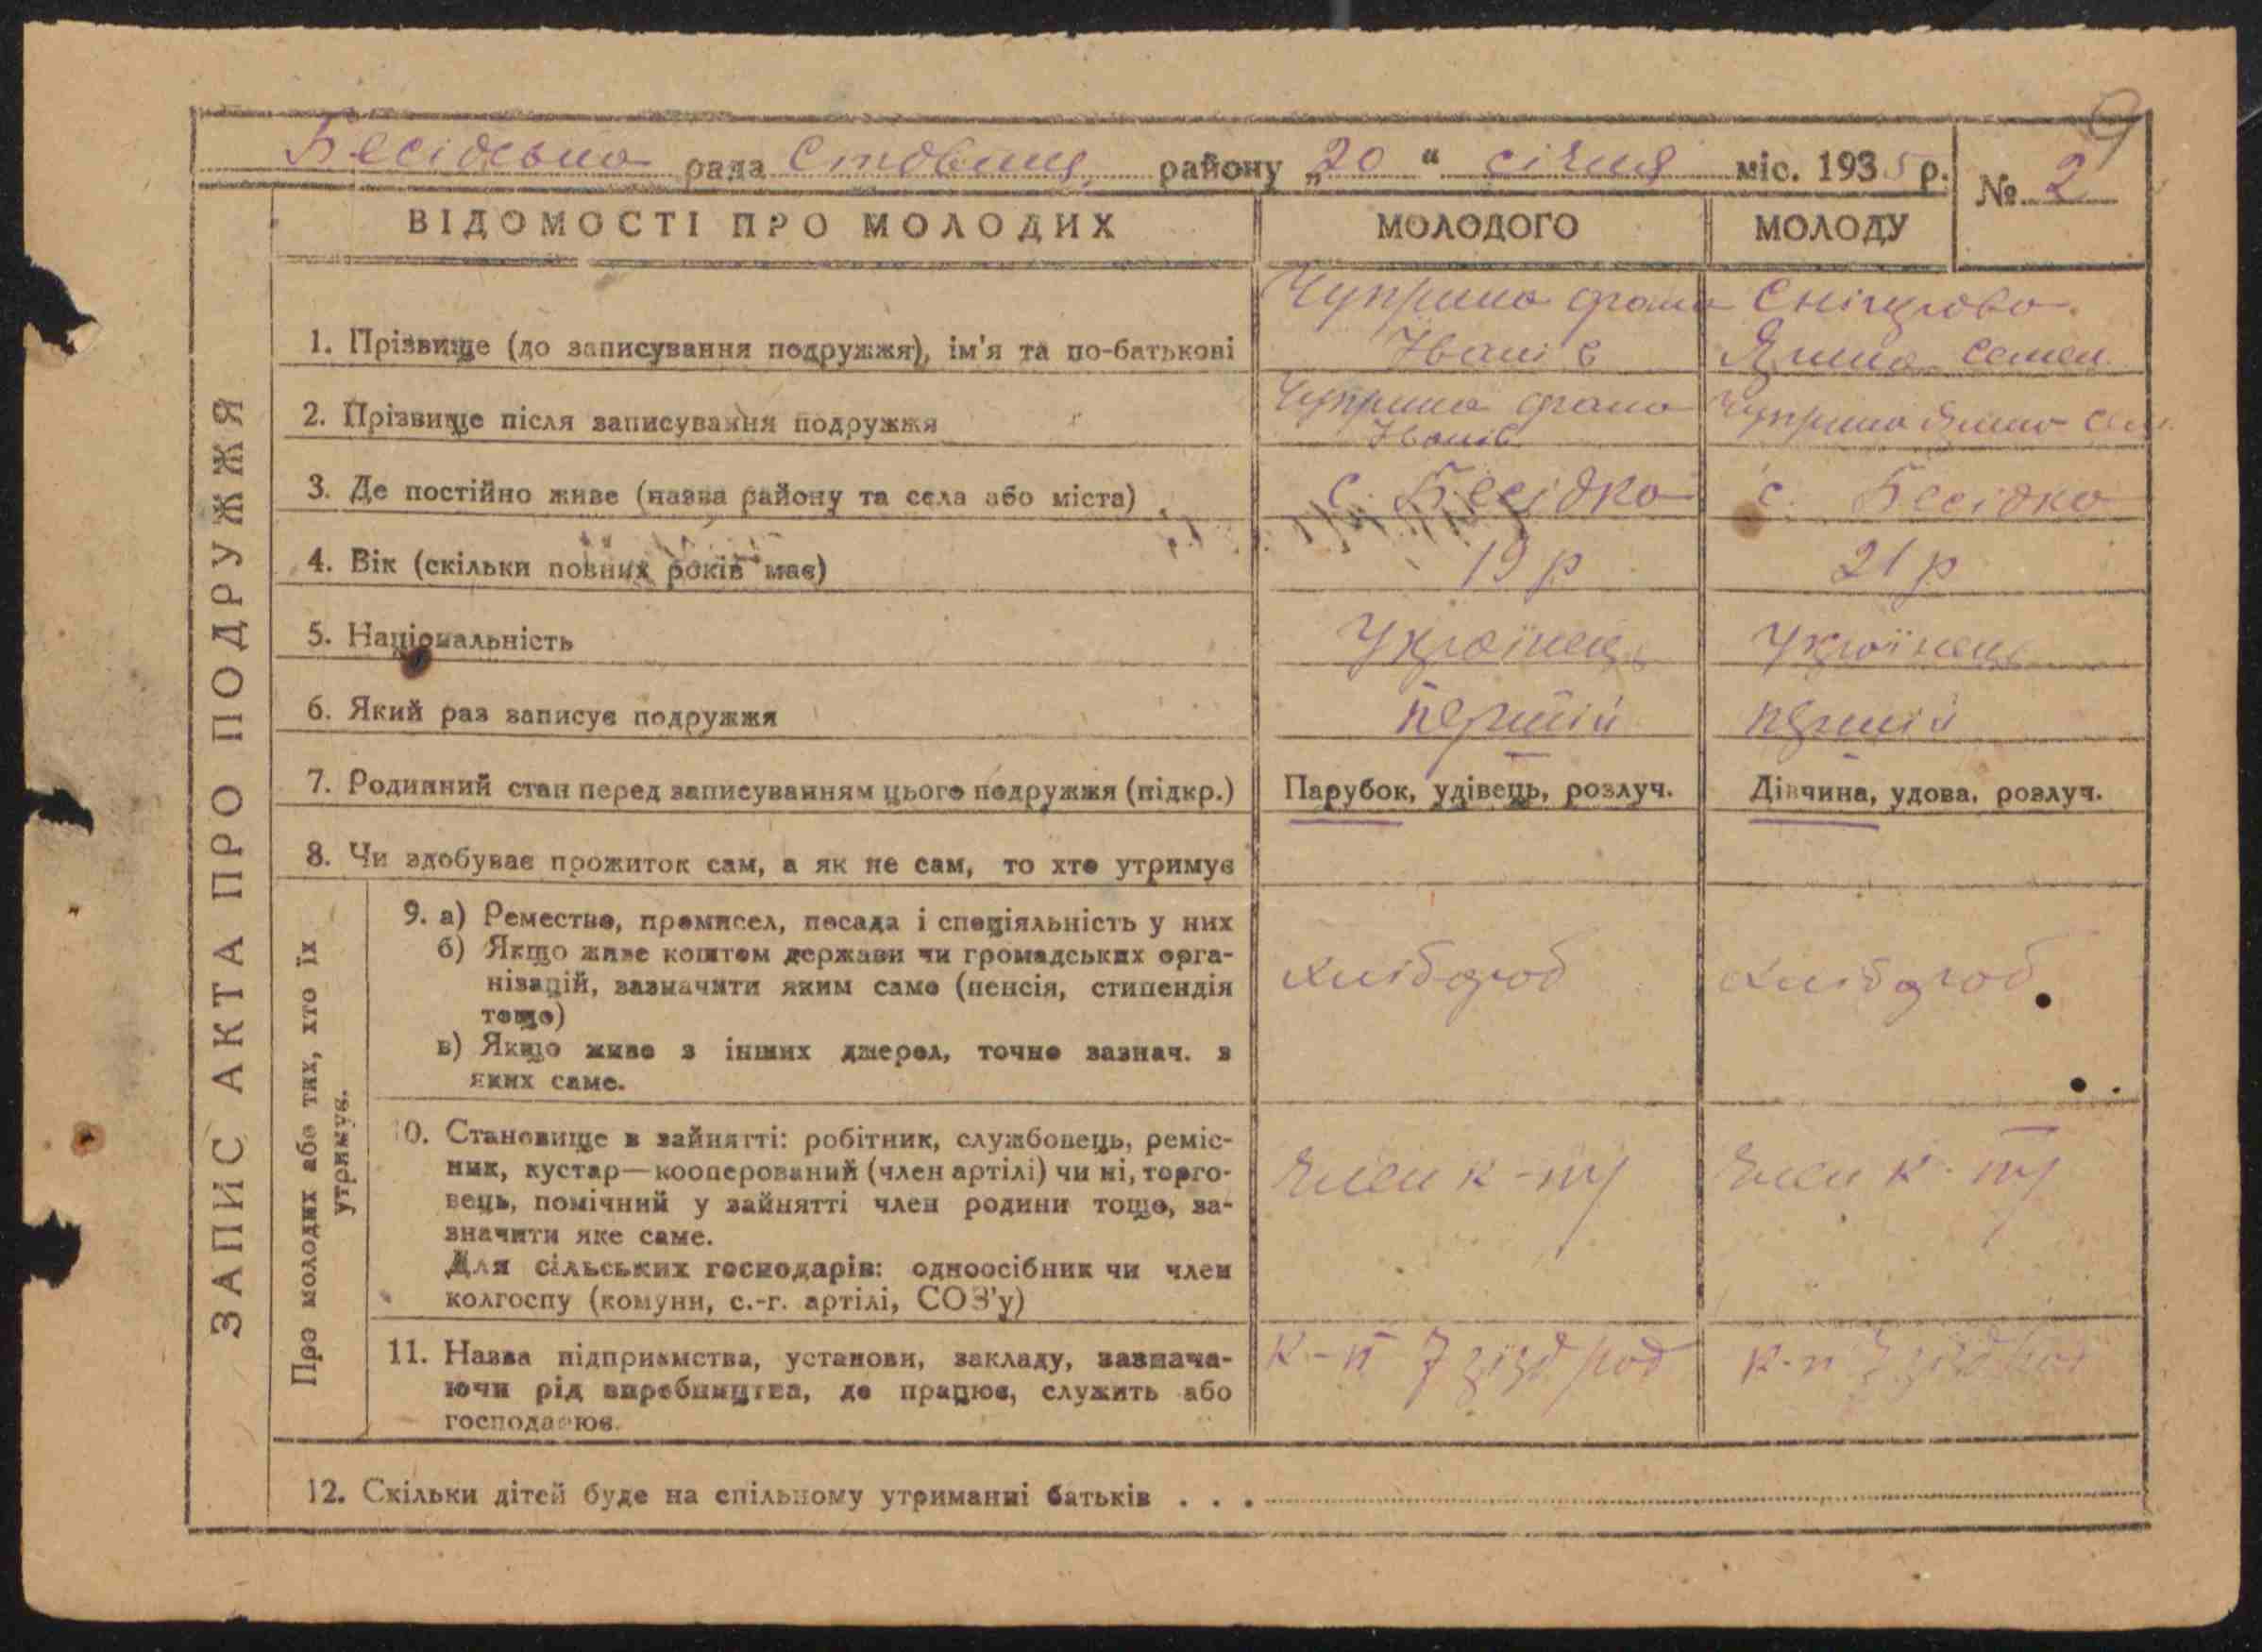 9
Бесідська рада Ставищ. району „20“ січня міс. 1935 р.
№ 2
ВІДОМОСТІ ПРО МОЛОДИХ МОЛОДОГО МОЛОДУ
ЗАПИС АКТА ПРО ПОДРУЖЖЯ
Чуприна
1. Прізвище (до записування подружжя), ім'я та по-батькові Іванів Ярина Семен.
2. Прізвище після записування подружжя Чуприна Іванів Чуприна Ярина Сем.
3. Де постійно живе (назва району та села або міста) с. Бесідка с. Бесідка
4. Вік (скільки повних років має) 19 р 21 р
5. Національність Українець Українець
6. Який раз записує подружжя перший перший
7. Родинний стан перед записуванням цього подружжя (підкр.) Парубок, удівець, розлуч. Дівчина, удова, розлуч.
8. Чи здобуває прожиток сам, а як не сам, то хто утримує
Про молодих або тих, хто їх
утримує.
9. а) Ремество, промисел, посада і спеціяльність у них
б) Якщо живе коштом держави чи громадських орга-
нізацій, зазначити яким саме (пенсія, стипендія
тощо)
в) Якщо живе з інших джерел, точно зазнач. з
яких саме.
хлібороб хлібороб
10. Становище в зайнятті: робітник, службовець, реміс-
ник, кустар—кооперований (член артілі) чи ні, торго-
вець, помічний у зайнятті член родини тощо, за-
значити яке саме.
Для сільських господарів: одноосібник чи член
колгоспу (комуни, с.-г. артілі, СОЗ'у)
член к-пу член к-пу
11. Назва підприємства, установи, закладу, зазнача-
ючи рід виробництва, де працює, служить або
господарює.
к-п 7 зізд рад к-п 7 зізд рад
12. Скільки дітей буде на спільному утриманні батьків . . .